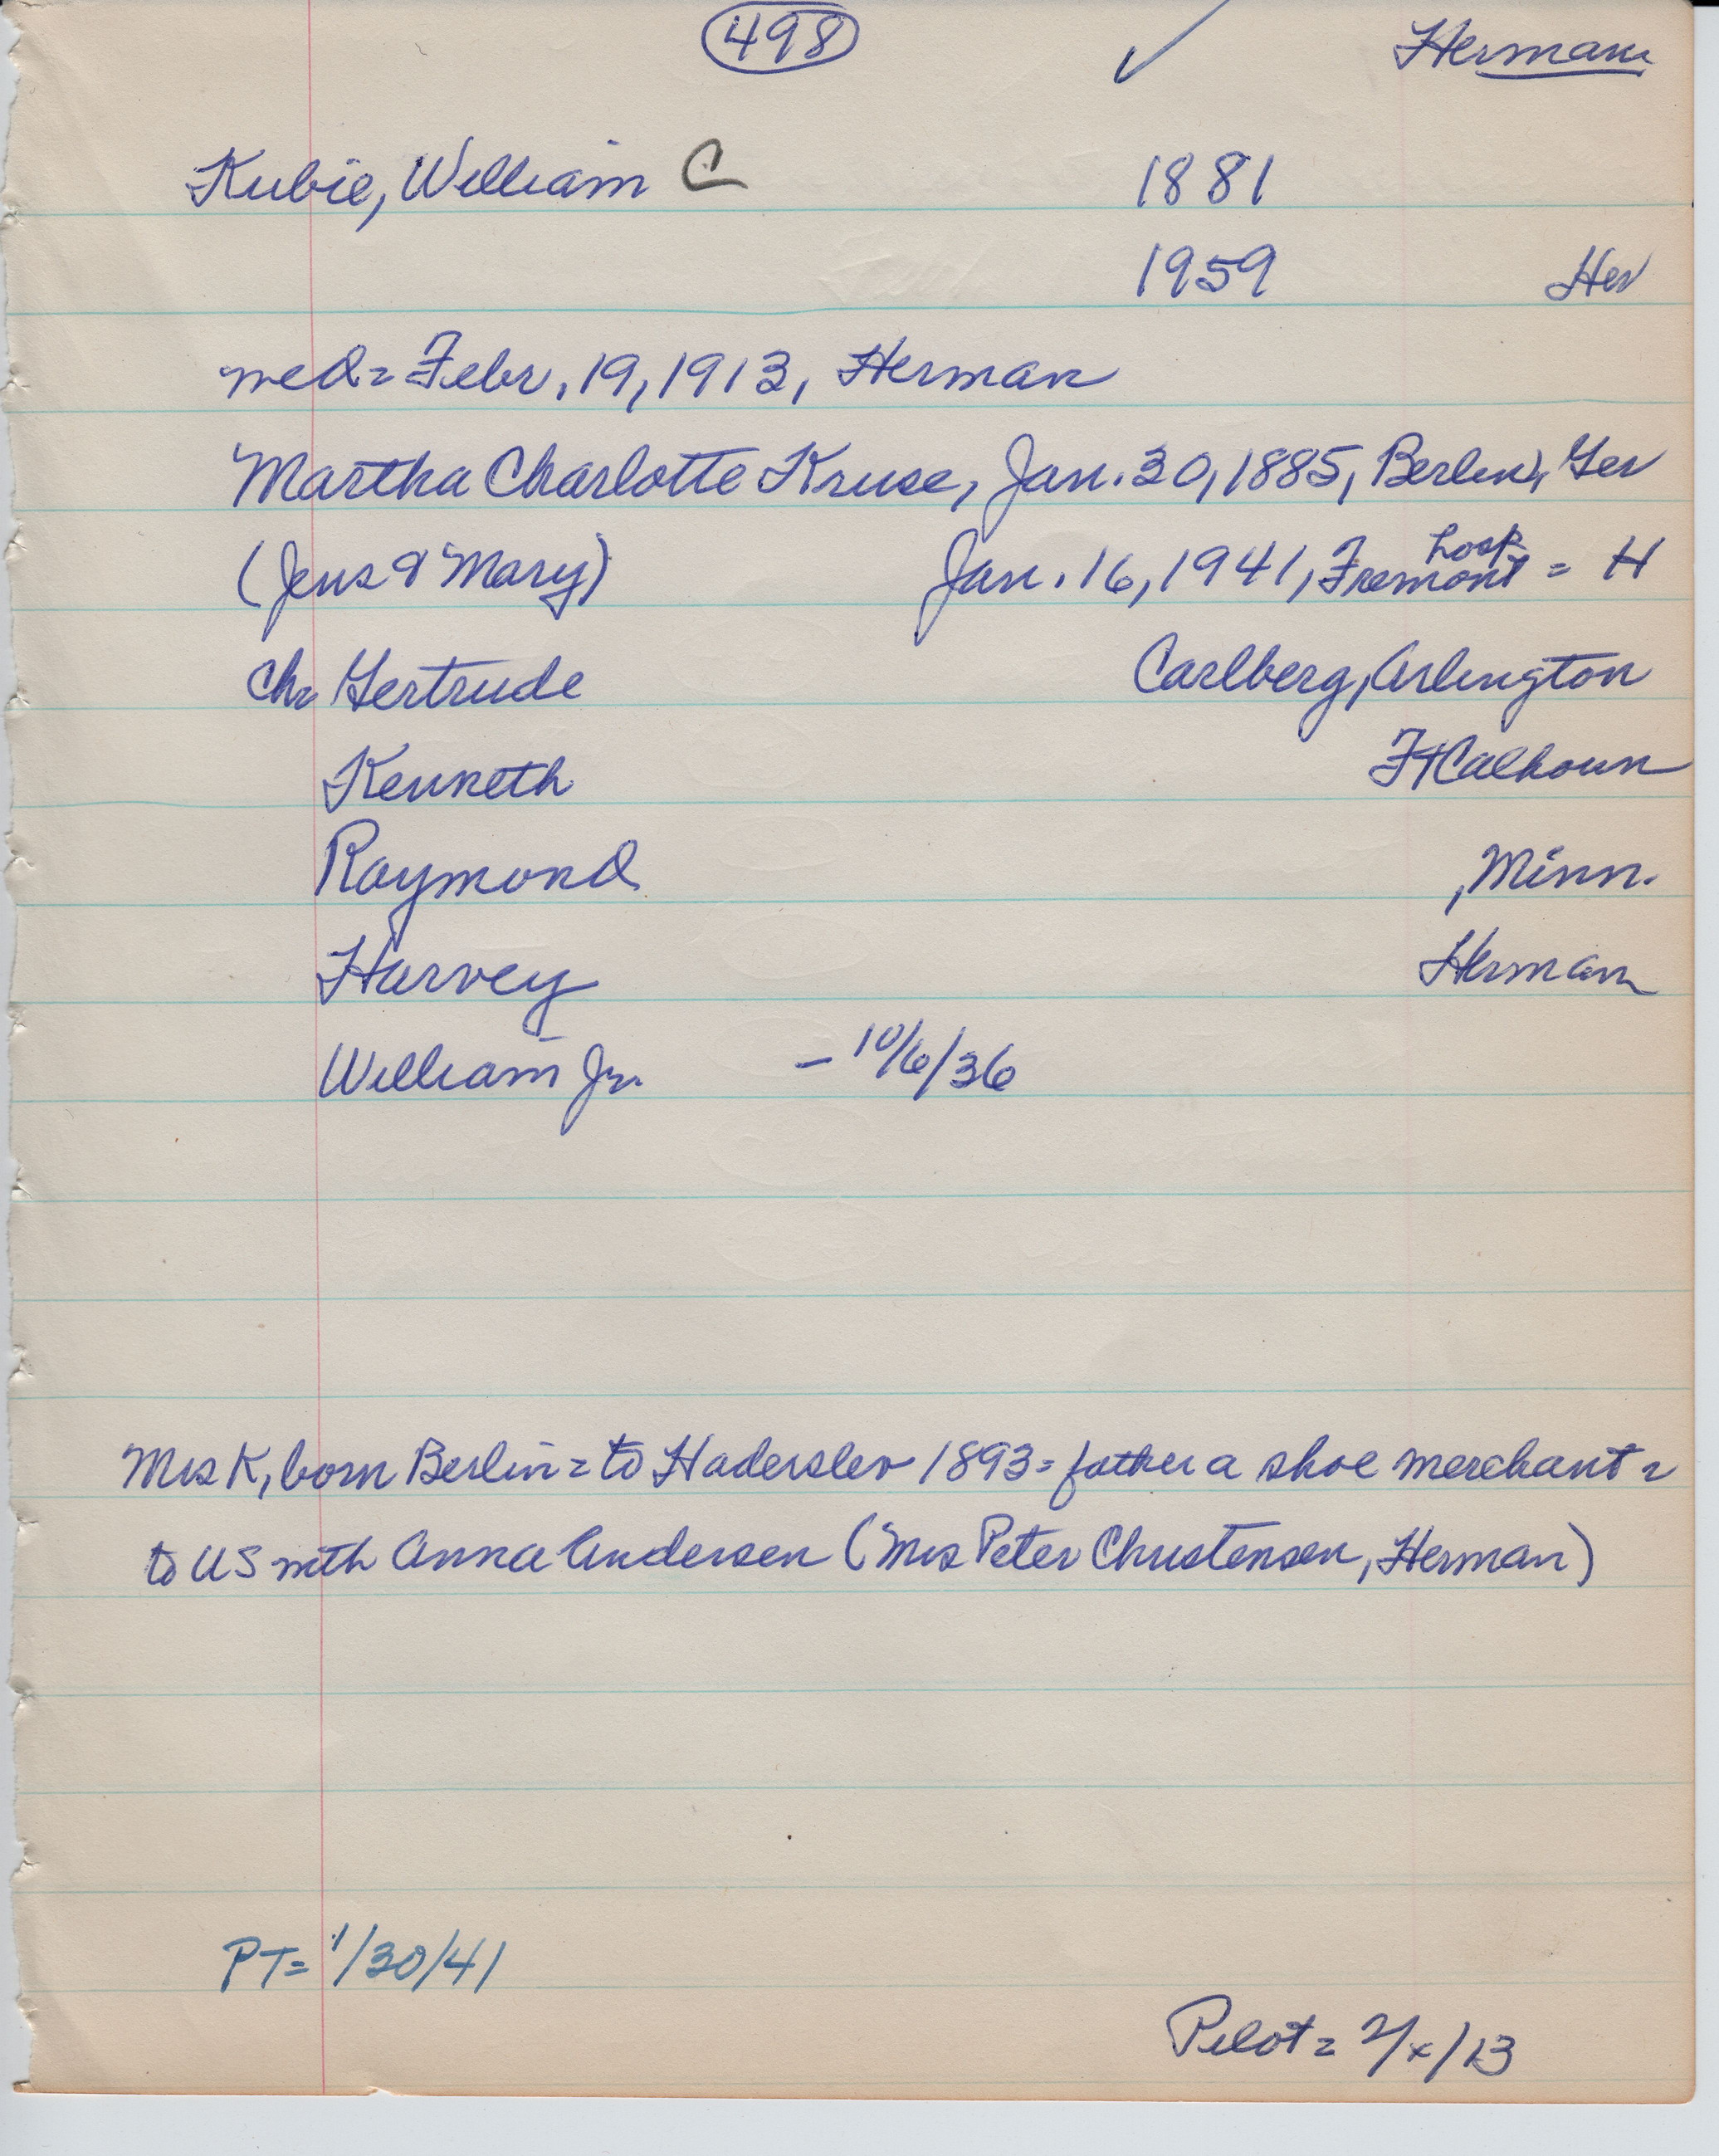 498 ✓ Herman
Kubie, William C 1881
1959 Her
med = Febr, 19, 1913, Herman
Martha Charlotte Kruse, Jan. 30, 1885, Berlin, Ger
(Jens & Mary) Jan. 16, 1941, Fremont hosp = H
Ch Gertrude Carlberg, Arlington
Kenneth Ft Calhoun
Raymond , Minn.
Harvey Herman
William Jr. - 10/6/36
Mrs K, born Berlin = to Haderslev 1893 = father a shoe merchant =
to US with Anna Andersen (Mrs Peter Christensen, Herman)
PT = 1/30/41
Pilot = 2/x/13